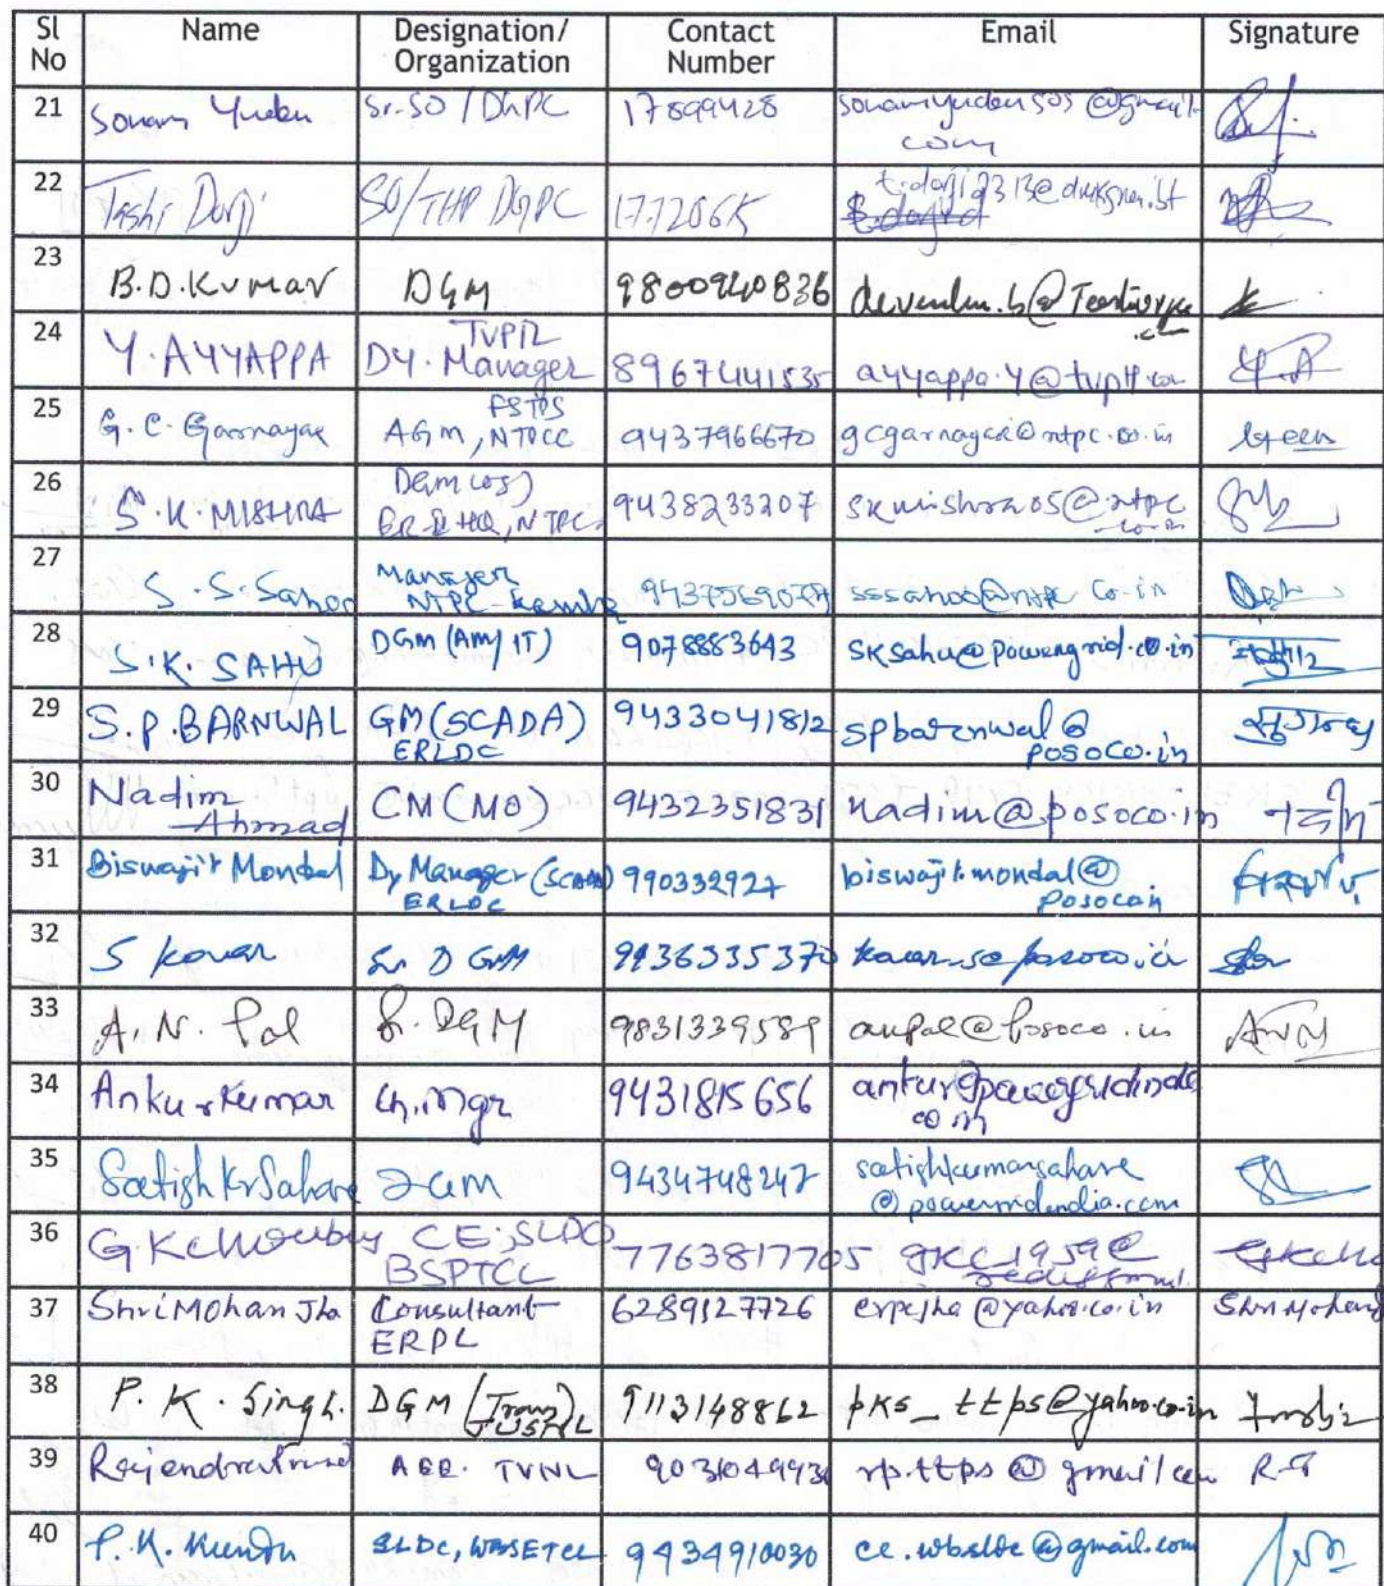 Sl No Name Designation/ Organization Contact Number Email Signature
21 Sonam Yuden Sr. SO / DGPC 17899428 sonamyuden505@gmail.com
22 Tashi Dorji SO/THP DGPC t.dorji9313@drukgreen.bt
23 B.D.Kumar DGM 9800940836
24 Y. AYYAPPA DY. Manager TVPTL 8967441535 ayyappa.y@tvptl.com
25 G. C. Garnayak AGM, NTPC FSTPS 9437966670 gcgarnayak@ntpc.co.in
26 S. K. MISHRA DGM (OS) ER-II HQ, NTPC 9438233207 skmishra05@ntpc.co.in
27 S. S. Sahoo Manager NTPC- sssahoo@ntpc.co.in
28 S.K. SAHU DGM (AM/IT) 9078883643 sksahu@powergrid.co.in
29 S.P.BARNWAL GM (SCADA) ERLDC 9433041812 spbarnwal@posoco.in
30 Nadim Ahmad CM (MO) 9432351831 nadim@posoco.in
31 Biswajit Mondal Dy Manager (SCADA) ERLDC 990332927 biswajit.mondal@posoco.in
32 S Konar Sr. DGM
33 A. N. Pal Sr. DGM 9831339589 anpal@posoco.in
34 Ankur Kumar Ch. Mgr 9431815656
35 Satish Kr Sahare DGM 9434748247 satishkumarsahare@powergridindia.com
36 G K Choubey CE, SLDC BSPTCL 7763817705 gkc1959@rediffmail.
37 Shri Mohan Jha Consultant ERPC 6289127726 erpcjha@yahoo.co.in Shri Mohan J
38 P. K. Singh. DGM (Trans) 9113148862 pks_ttps@yahoo.co.in
39 Rajendra Prasad TVNL rp.ttps@gmail.com
40 P. K. Kundu SLDC, WBSETCL 9434910030 ce.wbsldc@gmail.com